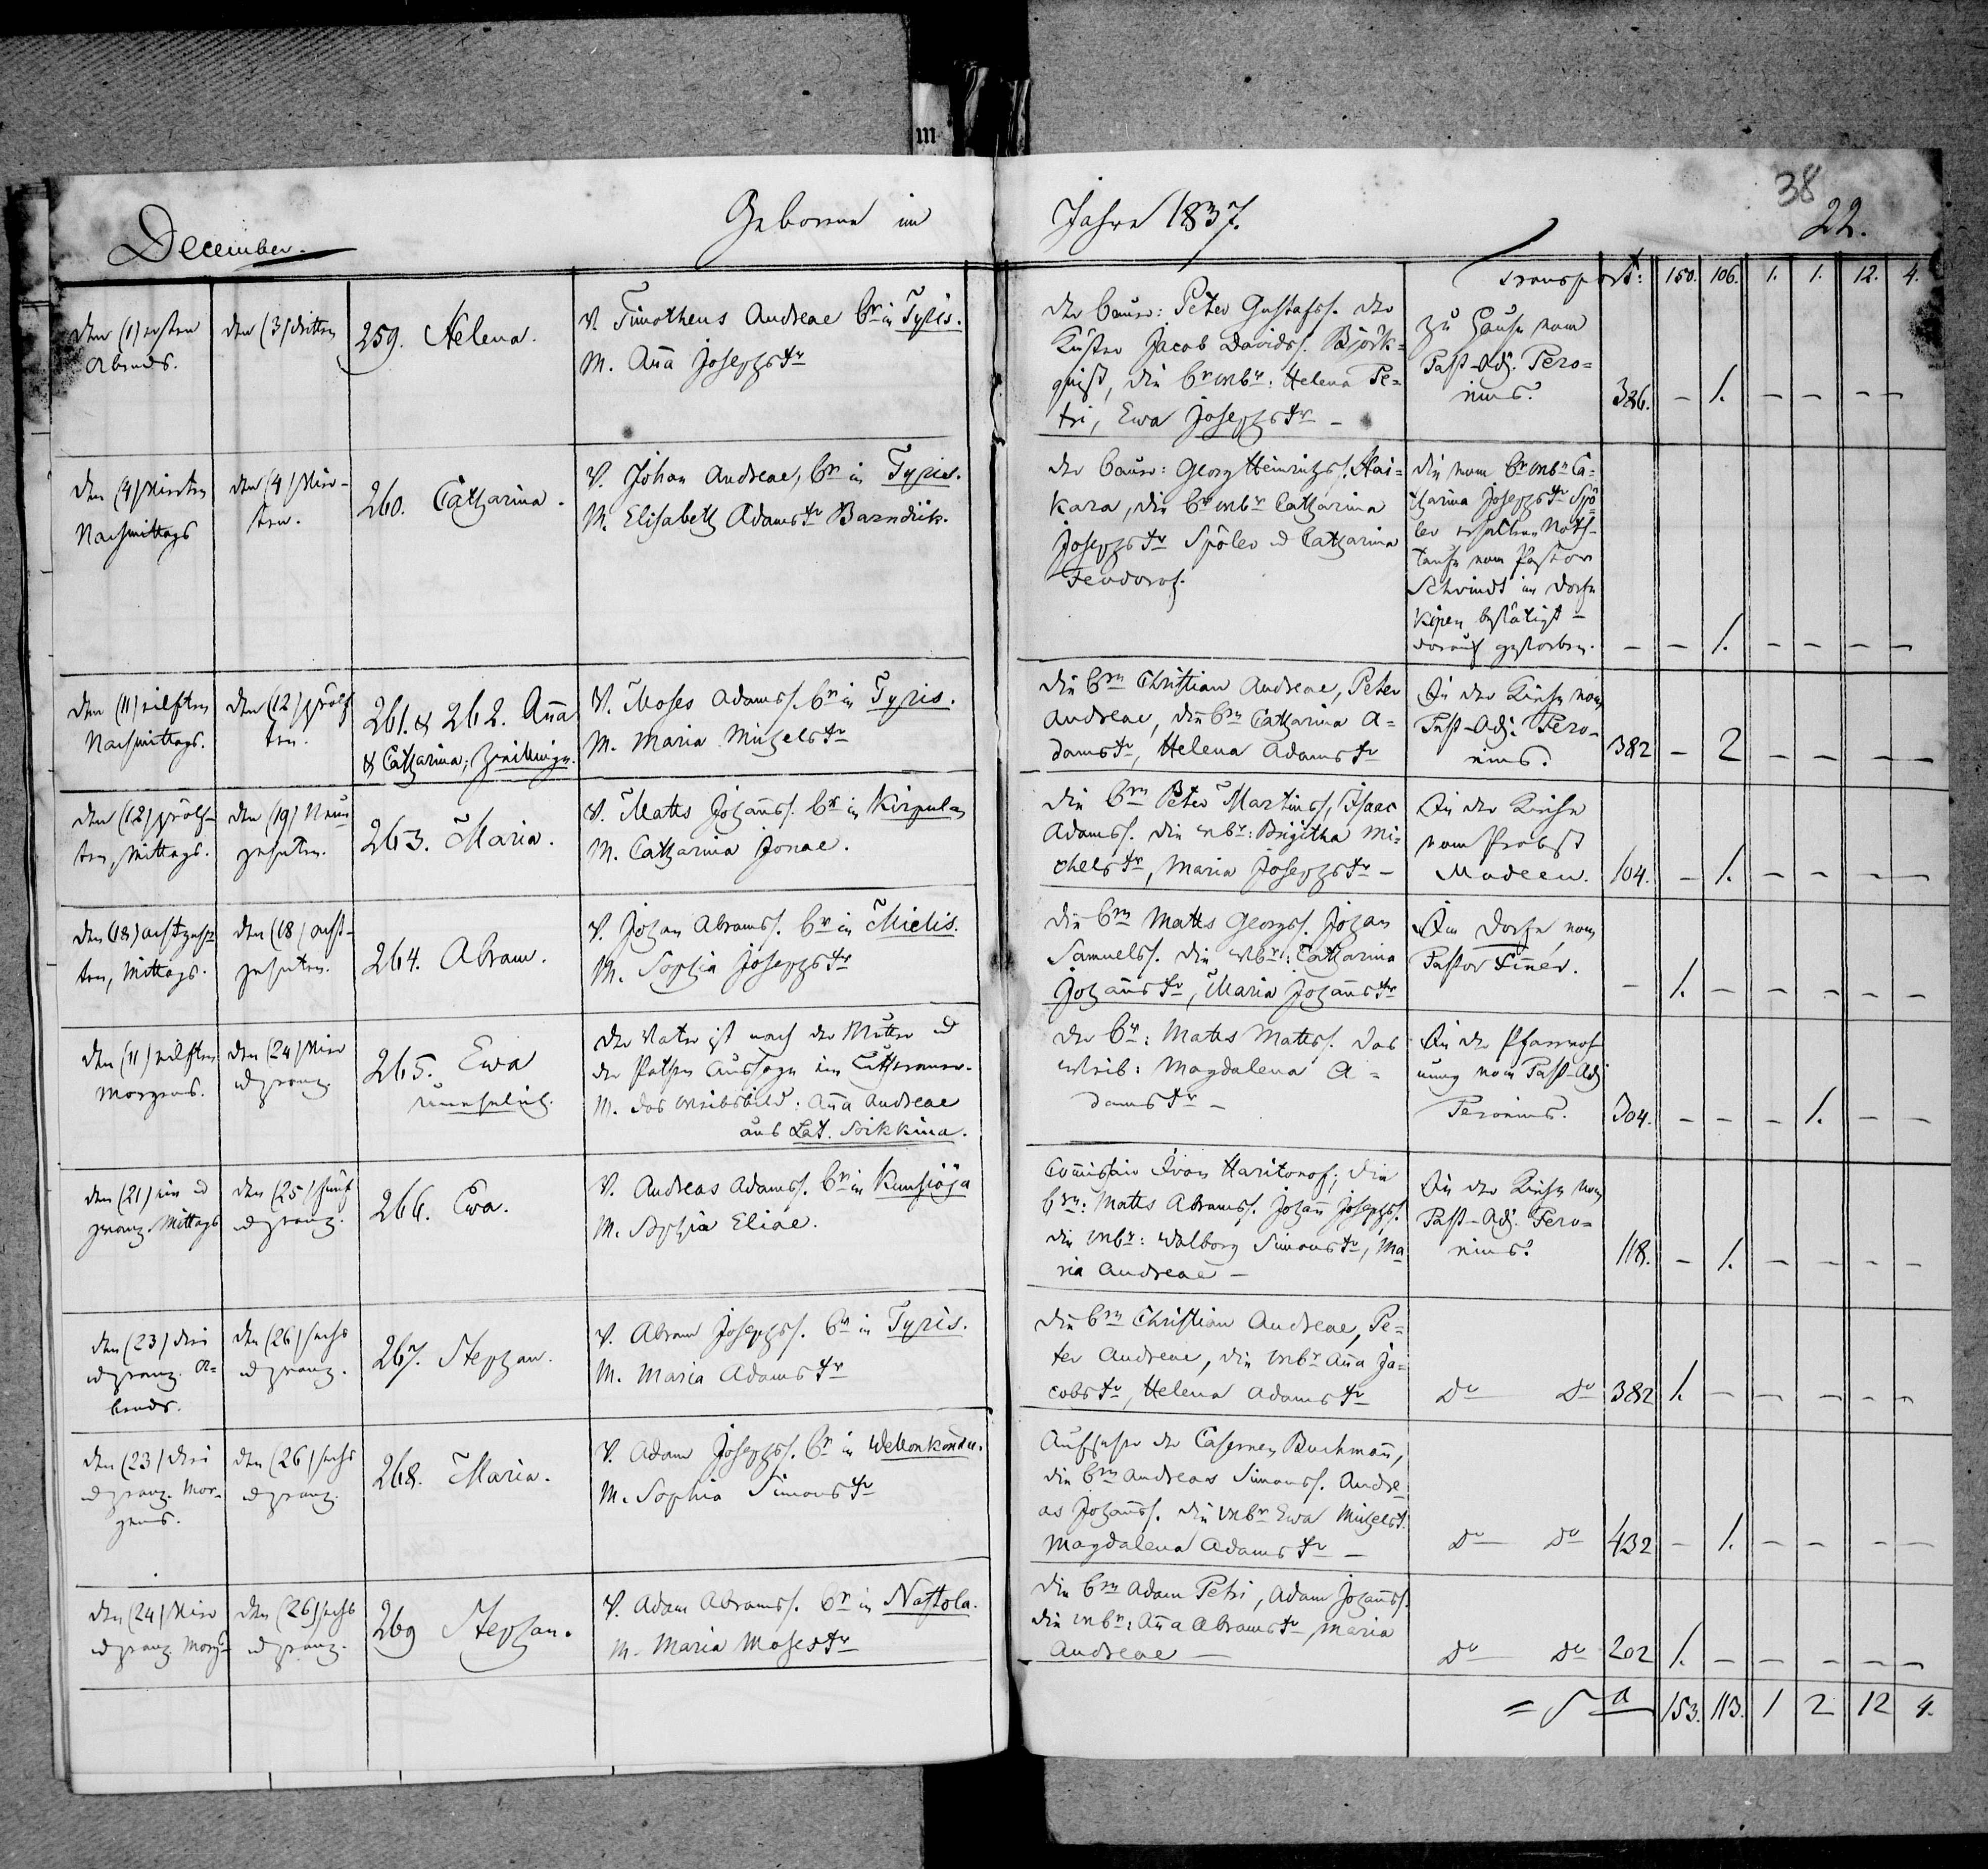 m
38
22.
December.
Geborene im
Jahre 1837.
Transport: 150. 106. 1. 1. 12. 4.
den (1) ersten
Abends.
den (3) dritten
259. Helena.
V. Timotheus Andreae Br in Tyris.
M. Anna Josephstr
Der Bauer: Peter Gustafss. der
Küster Jacob Davidss. Björk-
quist, die Brwbr: Helena Pe-
tri, Ewa Josephstr –
zu Hause vom
Past-Adj. Pero-
nius.
386. – 1. – – – –
den (4) vierten
Nachmittags
den (4) vier-
ten.
260. Catharina.
V. Johan Andreae, Br in Tyris.
M. Elisabeth Adamstr Barndük.
der Bauer: Georg Heinrichss. Hai-
kara, die Brwbr Catharina
Josephstr Spöler u Catharina
Feodorof.
die vom Brwbr Ca-
tharina Josephstr Spö-
ler erhaltene Noth-
taufe vom Pastor
Schvindt im Dorfe
Kipen bestätigt –
darauf gestorben.
– – 1. – – – –
den (11) eilften
Nachmittags.
den (12) zwölf-
ten.
261. & 262. Anna
& Catharina; Zwillinge.
V. Moses Adamss. Br in Tyris.
M. Maria Michelstr
die Brn Christian Andreae, Peter
Andreae, die Brn Catharina A-
damstr, Helena Adamstr
In der Kirche vom
Past-Adj. Pero-
nius.
382 – 2 – – – –
den (12) zwölf-
ten, Mittags.
den (19) Neun
zehnten.
263. Maria.
V. Matts Johanss. Br in Kirpula
M. Catharina Jonae.
die Brn Peter Martinss, Isaac
Adamss. die wbr: Brigitha Mi-
chelstr, Maria Josephstr –
In der Kirche
vom Probst
Modeen.
104. – 1. – – – –
den (18) achtzehn
ten, Mittags.
den (18) acht-
zehnten.
264. Abram.
V. Johan Abramss. Br in Mielis.
M. Sophia Josephstr
die Brn Matts Georgss. Johan
Samuelss. die wbr: Catharina
Johanstr, Maria Johanstr
Im Dorfe, vom
Pastor Finner.
– 1. – – – – –
den (11) eilften
Morgens.
den (24) vier
u zwanz.
265. Ewa
unehelich.
Der Vater ist nach der Mutter u
der Pathen Aussage ein Lutheraner.
M. das Weibsbild: Anna Andreae
aus Lat. Soikkina.
der Br: Matts Mattss. das
Weib: Magdalena A-
damstr –
In der Pfarrwoh-
nung vom Past-Adj
Peronius.
304. – – – 1. – –
den (21) ein u
zwanz. Mittags
den (25) fünf
u zwanz.
266. Ewa.
V. Andreas Adamss. Br in Kunsiöja
M. Sophia Eliae.
Commissair Ivan Haritonof; die
Brn: Matts Abramss. Johan Josephss.
die wbr: Walborg Simonstr, Ma
ria Andreae –
In der Kirche vom
Past-Adj. Pero-
nius.
118. – 1. – – – –
den (23) drei
u zwanz. A-
bends.
den (26) sechs
u zwanz.
267. Stephan.
V. Abram Josephss. Br in Tyris.
M. Maria Adamstr
die Brn Christian Andreae, Pe-
ter Andreae, die wbr Anna Ja-
cobstr, Helena Adamstr
do do 382 1. – – – – –
den (23) drei
u zwanz. Mor-
gens.
den (26) sechs
u zwanz.
268. Maria.
V. Adam Josephss. Br in Wellonkondu.
M. Sophia Simonstr
Aufseher der Casernen Buchmann,
die Brn Andreas Simonss. Andre
as Johanss. die wbr Ewa Michelst.
Magdalena Adamstr –
do do 432 – 1. – – – –
den (24) vier
u zwanz Morg.
den (26) sechs
u zwanz.
269 Stephan.
V. Adam Abramss. Br in Nastola.
M. Maria Mosestr
die Brn Adam Petri, Adam Johanss.
die wbr: Anna Abramstr, Maria
Andreae –
do do 202 1. – – – – –
= Sa 153. 113. 1 2 12 4.